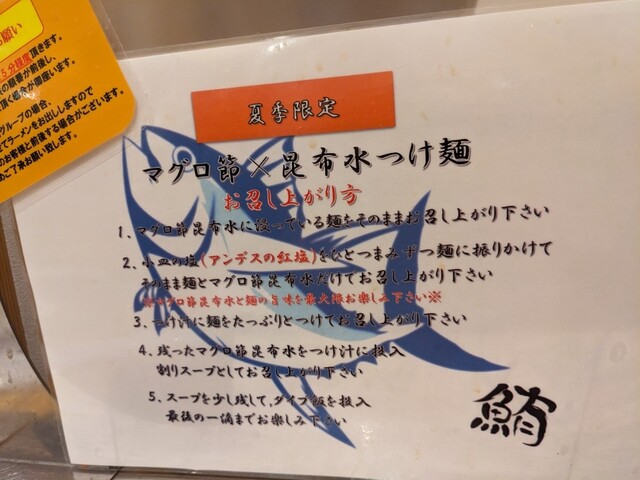 お願い
5分程度頂きます。
の順番が前後し、
頂く場合が御座います。
グループの場合、
てラーメンをお出ししますので
のお客様と前後する場合がございます。
めご了承お願い致します。
夏季限定
マグロ節×昆布水つけ麺
お召し上がり方
1、マグロ節昆布水に浸っている麺をそのままお召し上がり下さい
2、小皿の塩(アンデスの紅塩)をひとつまみずつ麺に振りかけて
そのまま麺とマグロ節昆布水だけでお召し上がり下さい
※マグロ節昆布水と麺の旨味を最大限お楽しみ下さい※
3、つけ汁に麺をたっぷりとつけてお召し上がり下さい
4、残ったマグロ節昆布水をつけ汁に投入
割りスープとしてお召し上がり下さい
5、スープを少し残して、ダイブ飯を投入
最後の一滴までお楽しみ下さい
鮪